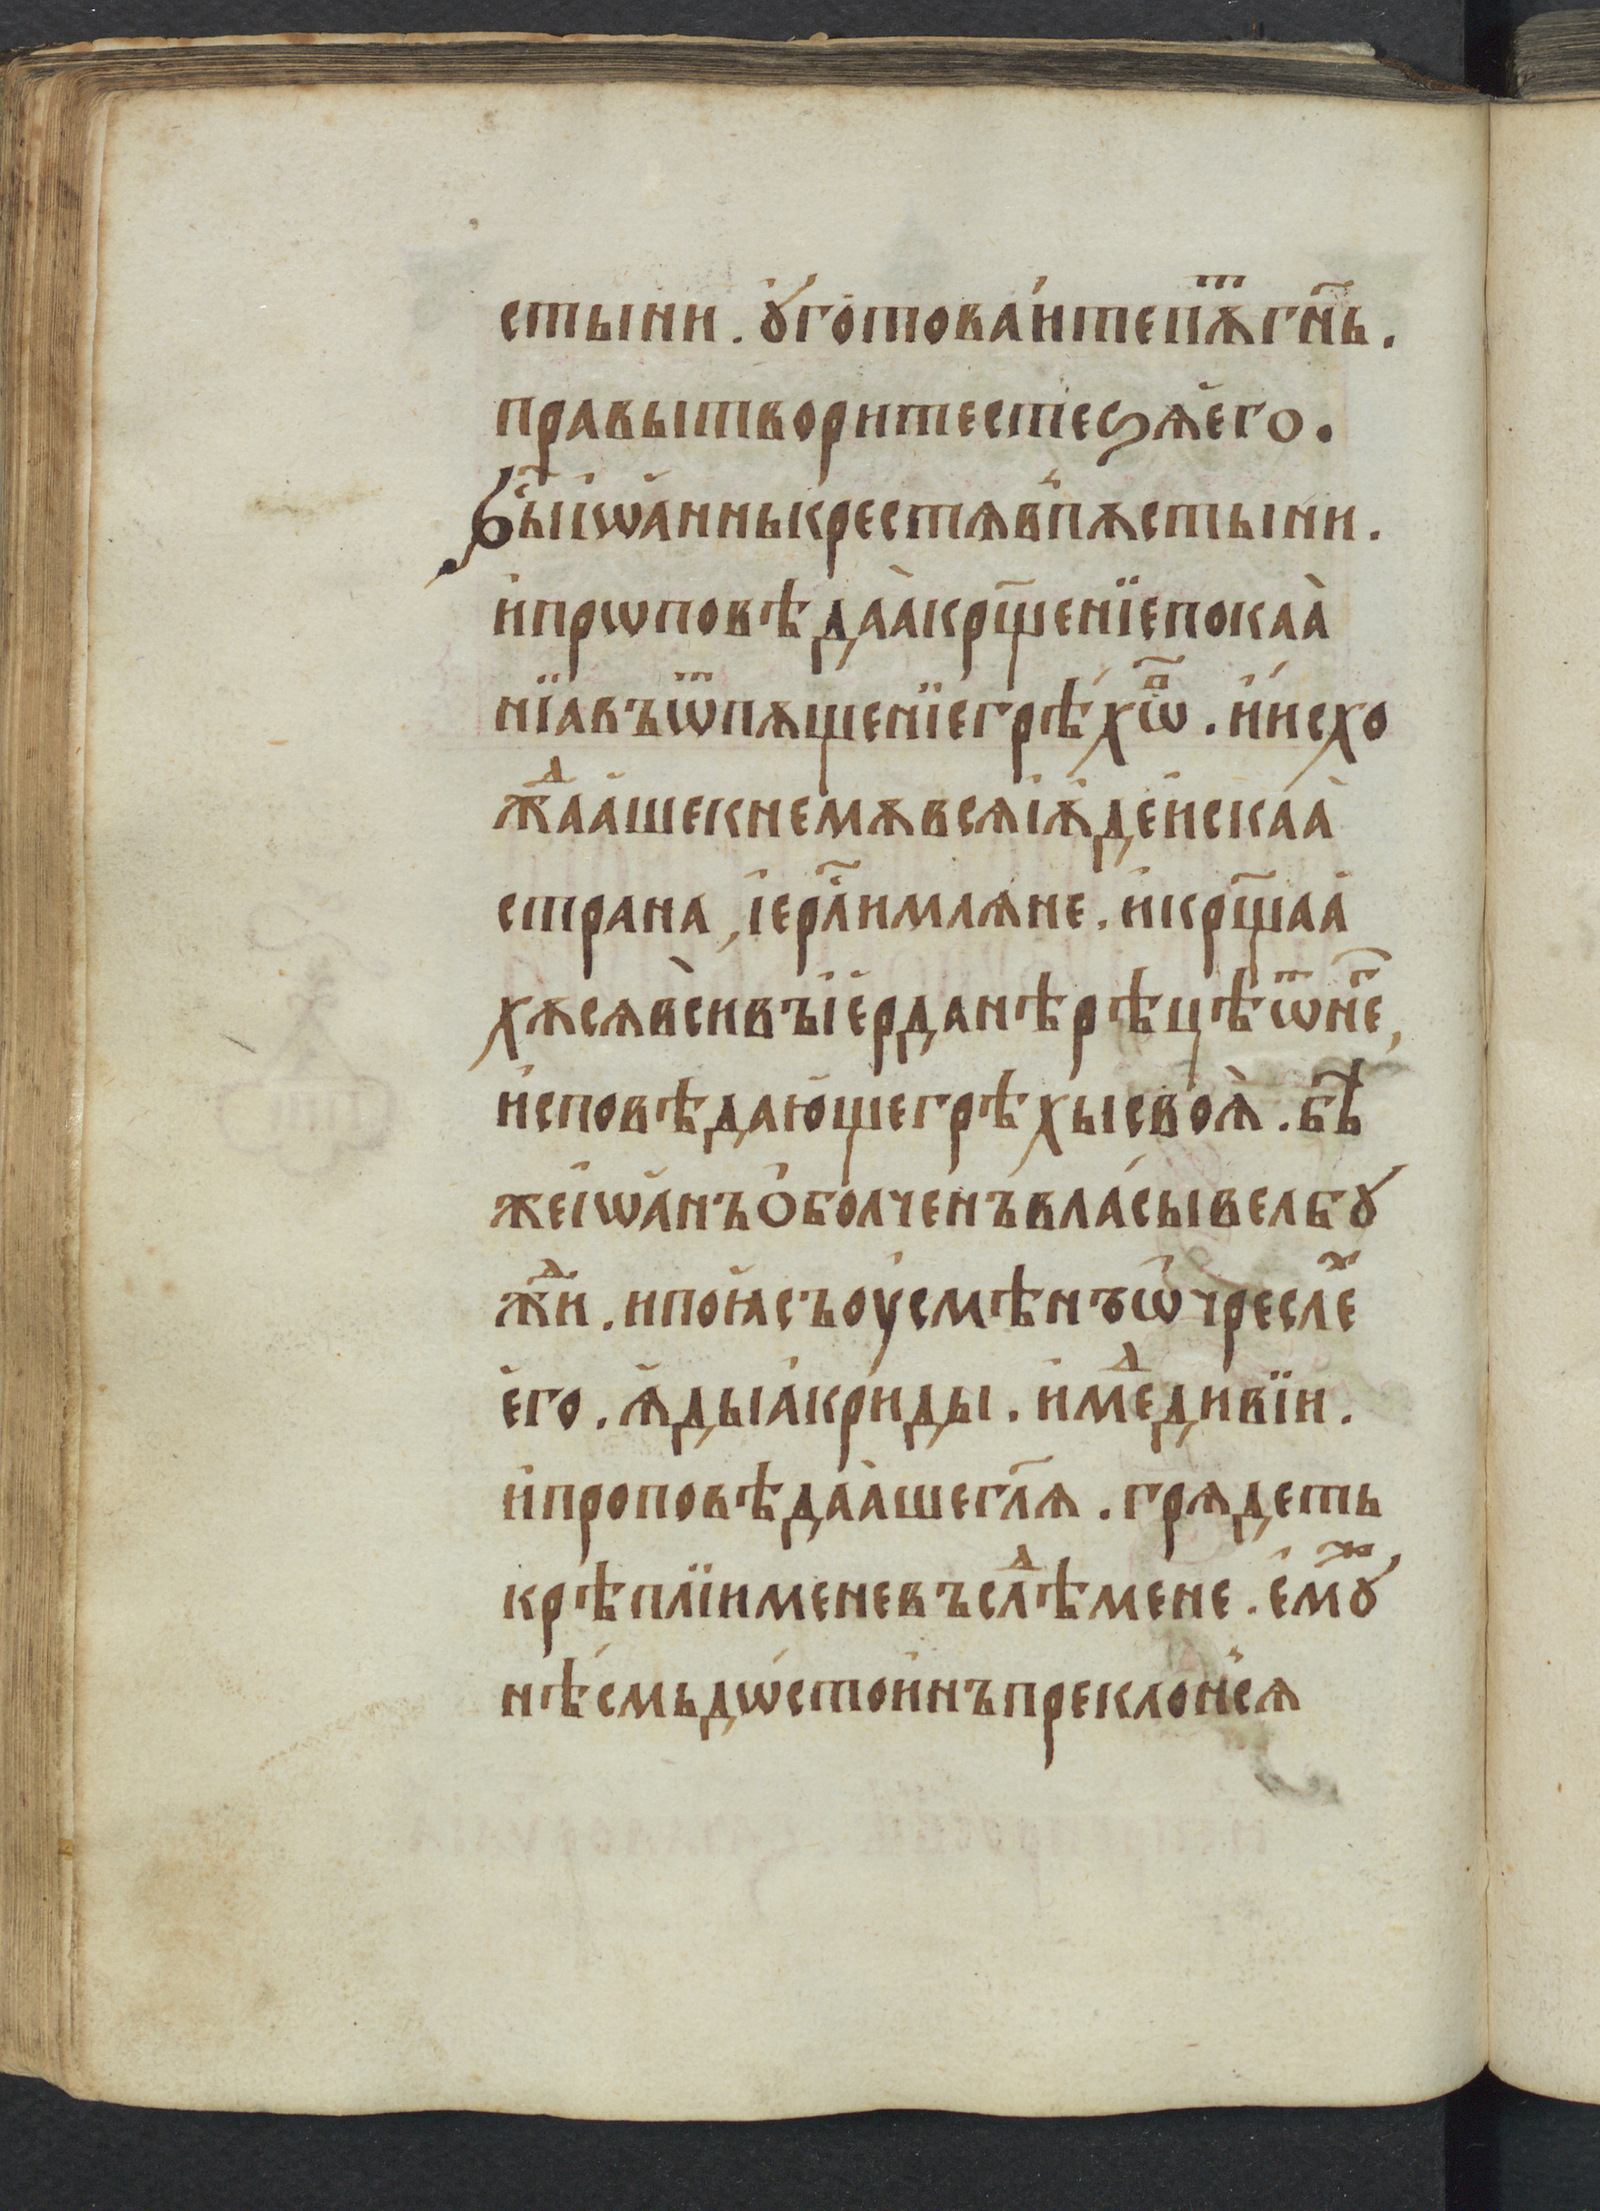 стыни . ꙋготоваитепѫⷮгн҃ь .
правытворитестеꙅѧего .
Бы҃іѡаннькрестѧвпѫстыни .
ипрѡповѣдаакрщ҃енїепокаа
нїавъѿпѫщенїегрѣхѡⷡ . иисхо
жⷣаашекнемѫвсѧіѫдеискаа
страна , іерл҃имлѧне . икрщ҃аа
хѫсѧвсивъіерданѣрѣцѣѿне҃ ,
исповѣдающегрѣхысвоѧ . бѣ҃
жеіѡанъоболченъвласывелбꙋ
жⷣи . ипоꙗсъоусмѣнъѡчреслеⷯ
его . ѧдыакриды . имеⷣдивїи .
ипроповѣдаашегл҃ѧ . грѧдеть
крѣплїименевъслⷣѣмене . емꙋⷤ
нѣсмьдѡстоинъпреклонсѧ